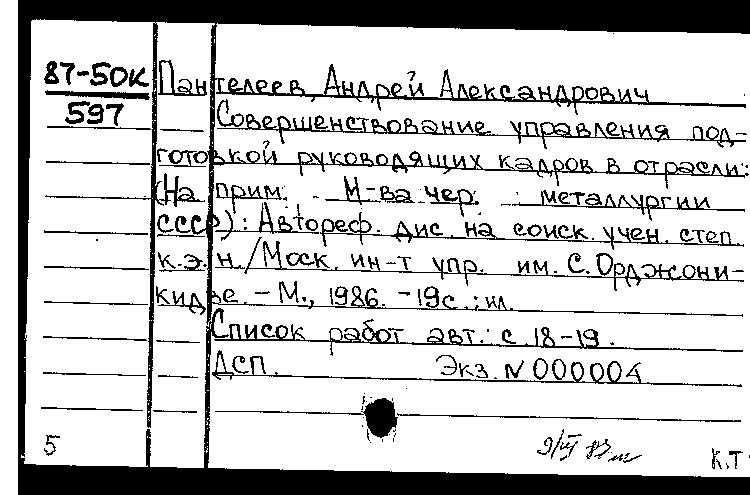 87-50к Пантелеев, Андрей Александрович
597 Совершенствование управления под-
готовкой руководящих кадров в отрасли:
(На прим. М-ва чер. металлургии
СССР): Автореф. дис. на соиск. учен. степ.
к.э.н./Моск. ин-т упр. им. С. Орджони-
кидзе. - М., 1986. - 19с.; ил.
Список работ авт.: с. 18-19.
ДСП. Экз. N 000004
5
К.Т